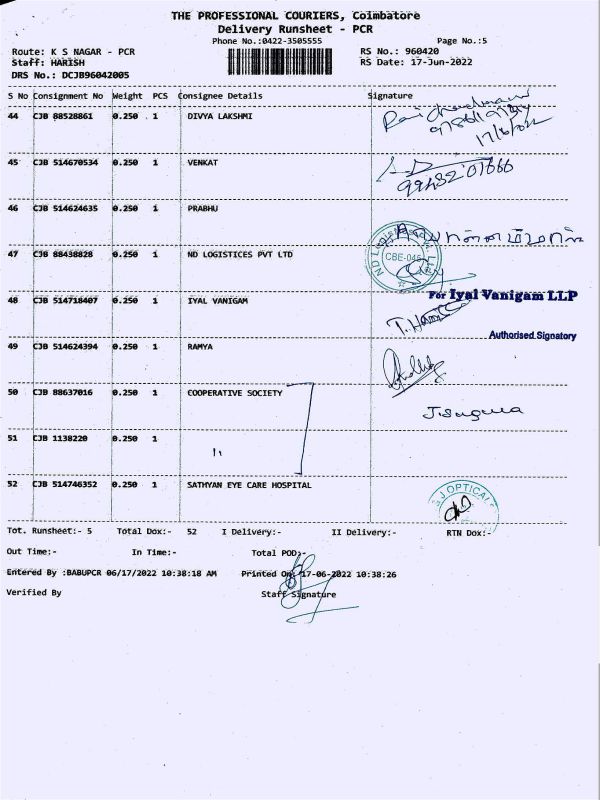 THE PROFESSIONAL COURIERS, Coimbatore
Delivery Runsheet - PCR
Phone No.:0422-3505555 Page No.:5
Route: K S NAGAR - PCR RS No.: 960420
Staff: HARISH RS Date: 17-Jun-2022
DRS No.: DCJB96042005
S No Consignment No Weight PCS Consignee Details Signature
44 CJB 88528861 0.250 1 DIVYA LAKSHMI
17/6/022
45 CJB 514670534 0.250 1 VENKAT
46 CJB 514624635 0.250 1 PRABHU
47 CJB 88438828 0.250 1 ND LOGISTICES PVT LTD
ND Logistics CBE-046
48 CJB 514718407 0.250 1 IYAL VANIGAM
For Iyal Vanigam LLP
Authorised Signatory
49 CJB 514624394 0.250 1 RAMYA
50 CJB 88637016 0.250 1 COOPERATIVE SOCIETY
J. Suguna
51 CJB 1138220 0.250 1 "
52 CJB 514746352 0.250 1 SATHYAN EYE CARE HOSPITAL
J OPTICAL
Tot. Runsheet:- 5 Total Dox:- 52 I Delivery:- II Delivery:- RTN Dox:-
Out Time:- In Time:- Total POD:-
Entered By :BABUPCR 06/17/2022 10:38:18 AM Printed On: 17-06-2022 10:38:26
Verified By Staff Signature